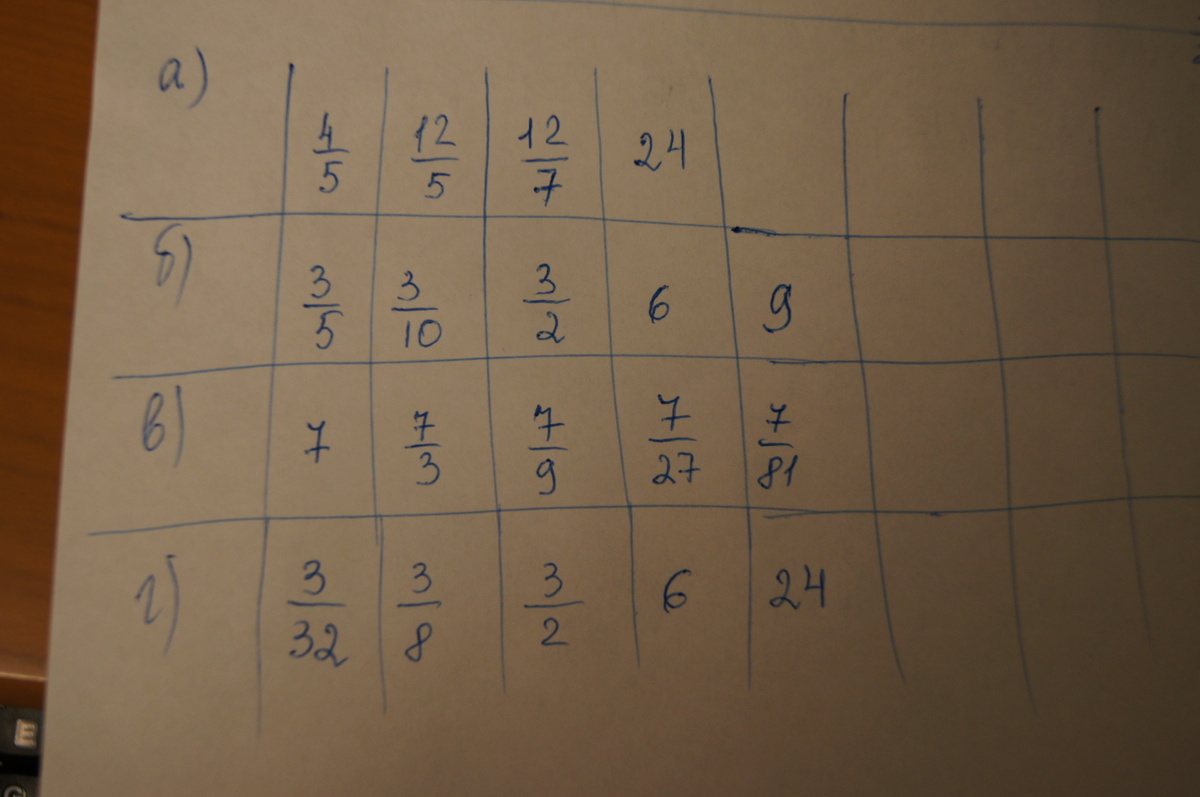 а) 4/5 12/5 12/7 24
б) 3/5 3/10 3/2 6 9
в) 7 7/3 7/9 7/27 7/81
г) 3/32 3/8 3/2 6 24
E